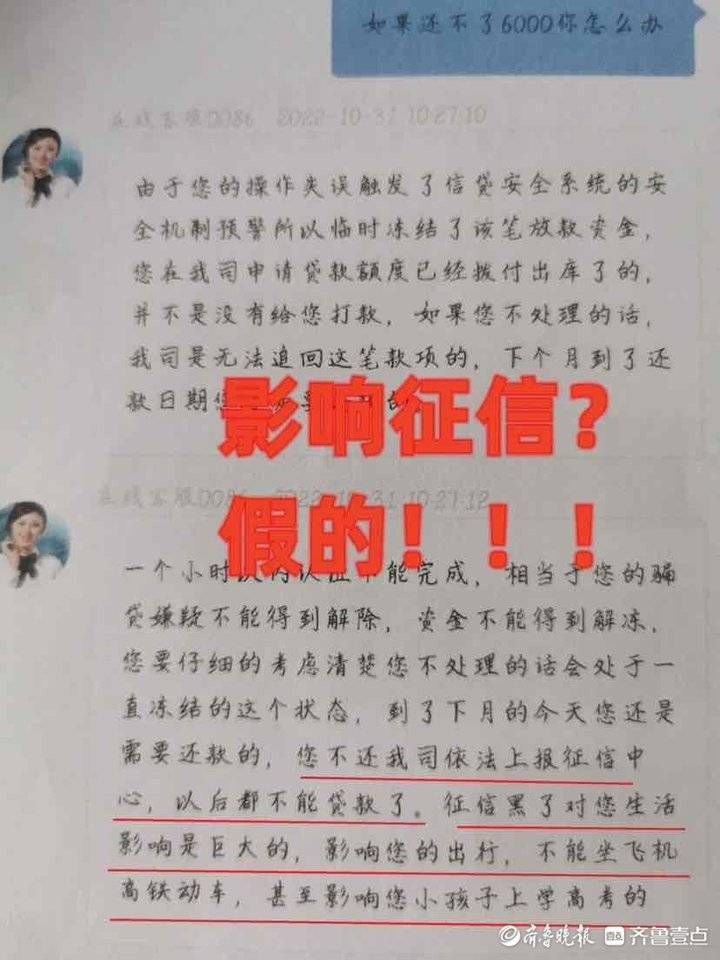 如果还不了6000你怎么办
在线客服0086 2022-10-31 10:27:10
由于您的操作失误触发了信贷安全系统的安
全机制预警所以临时冻结了该笔放款资金,
您在我司申请贷款额度已经拨付出库了的,
并不是没有给您打款, 如果您不处理的话,
我司是无法追回这笔款项的, 下个月到了还
款日期您
影响征信?
在线客服0086 2022-10-31 10:27:12
假的!!!
一个小时 不能完成, 相当于您的骗
贷嫌疑不能得到解除, 资金不能得到解冻,
您要仔细的考虑清楚您不处理的话会处于一
直冻结的这个状态, 到了下月的今天您还是
需要还款的, 您不还我司依法上报征信中
心, 以后都不能贷款了。征信黑了对您生活
影响是巨大的, 影响您的出行, 不能坐飞机
高铁动车, 甚至影响您小孩子上学高考的
齐鲁晚报 齐鲁壹点